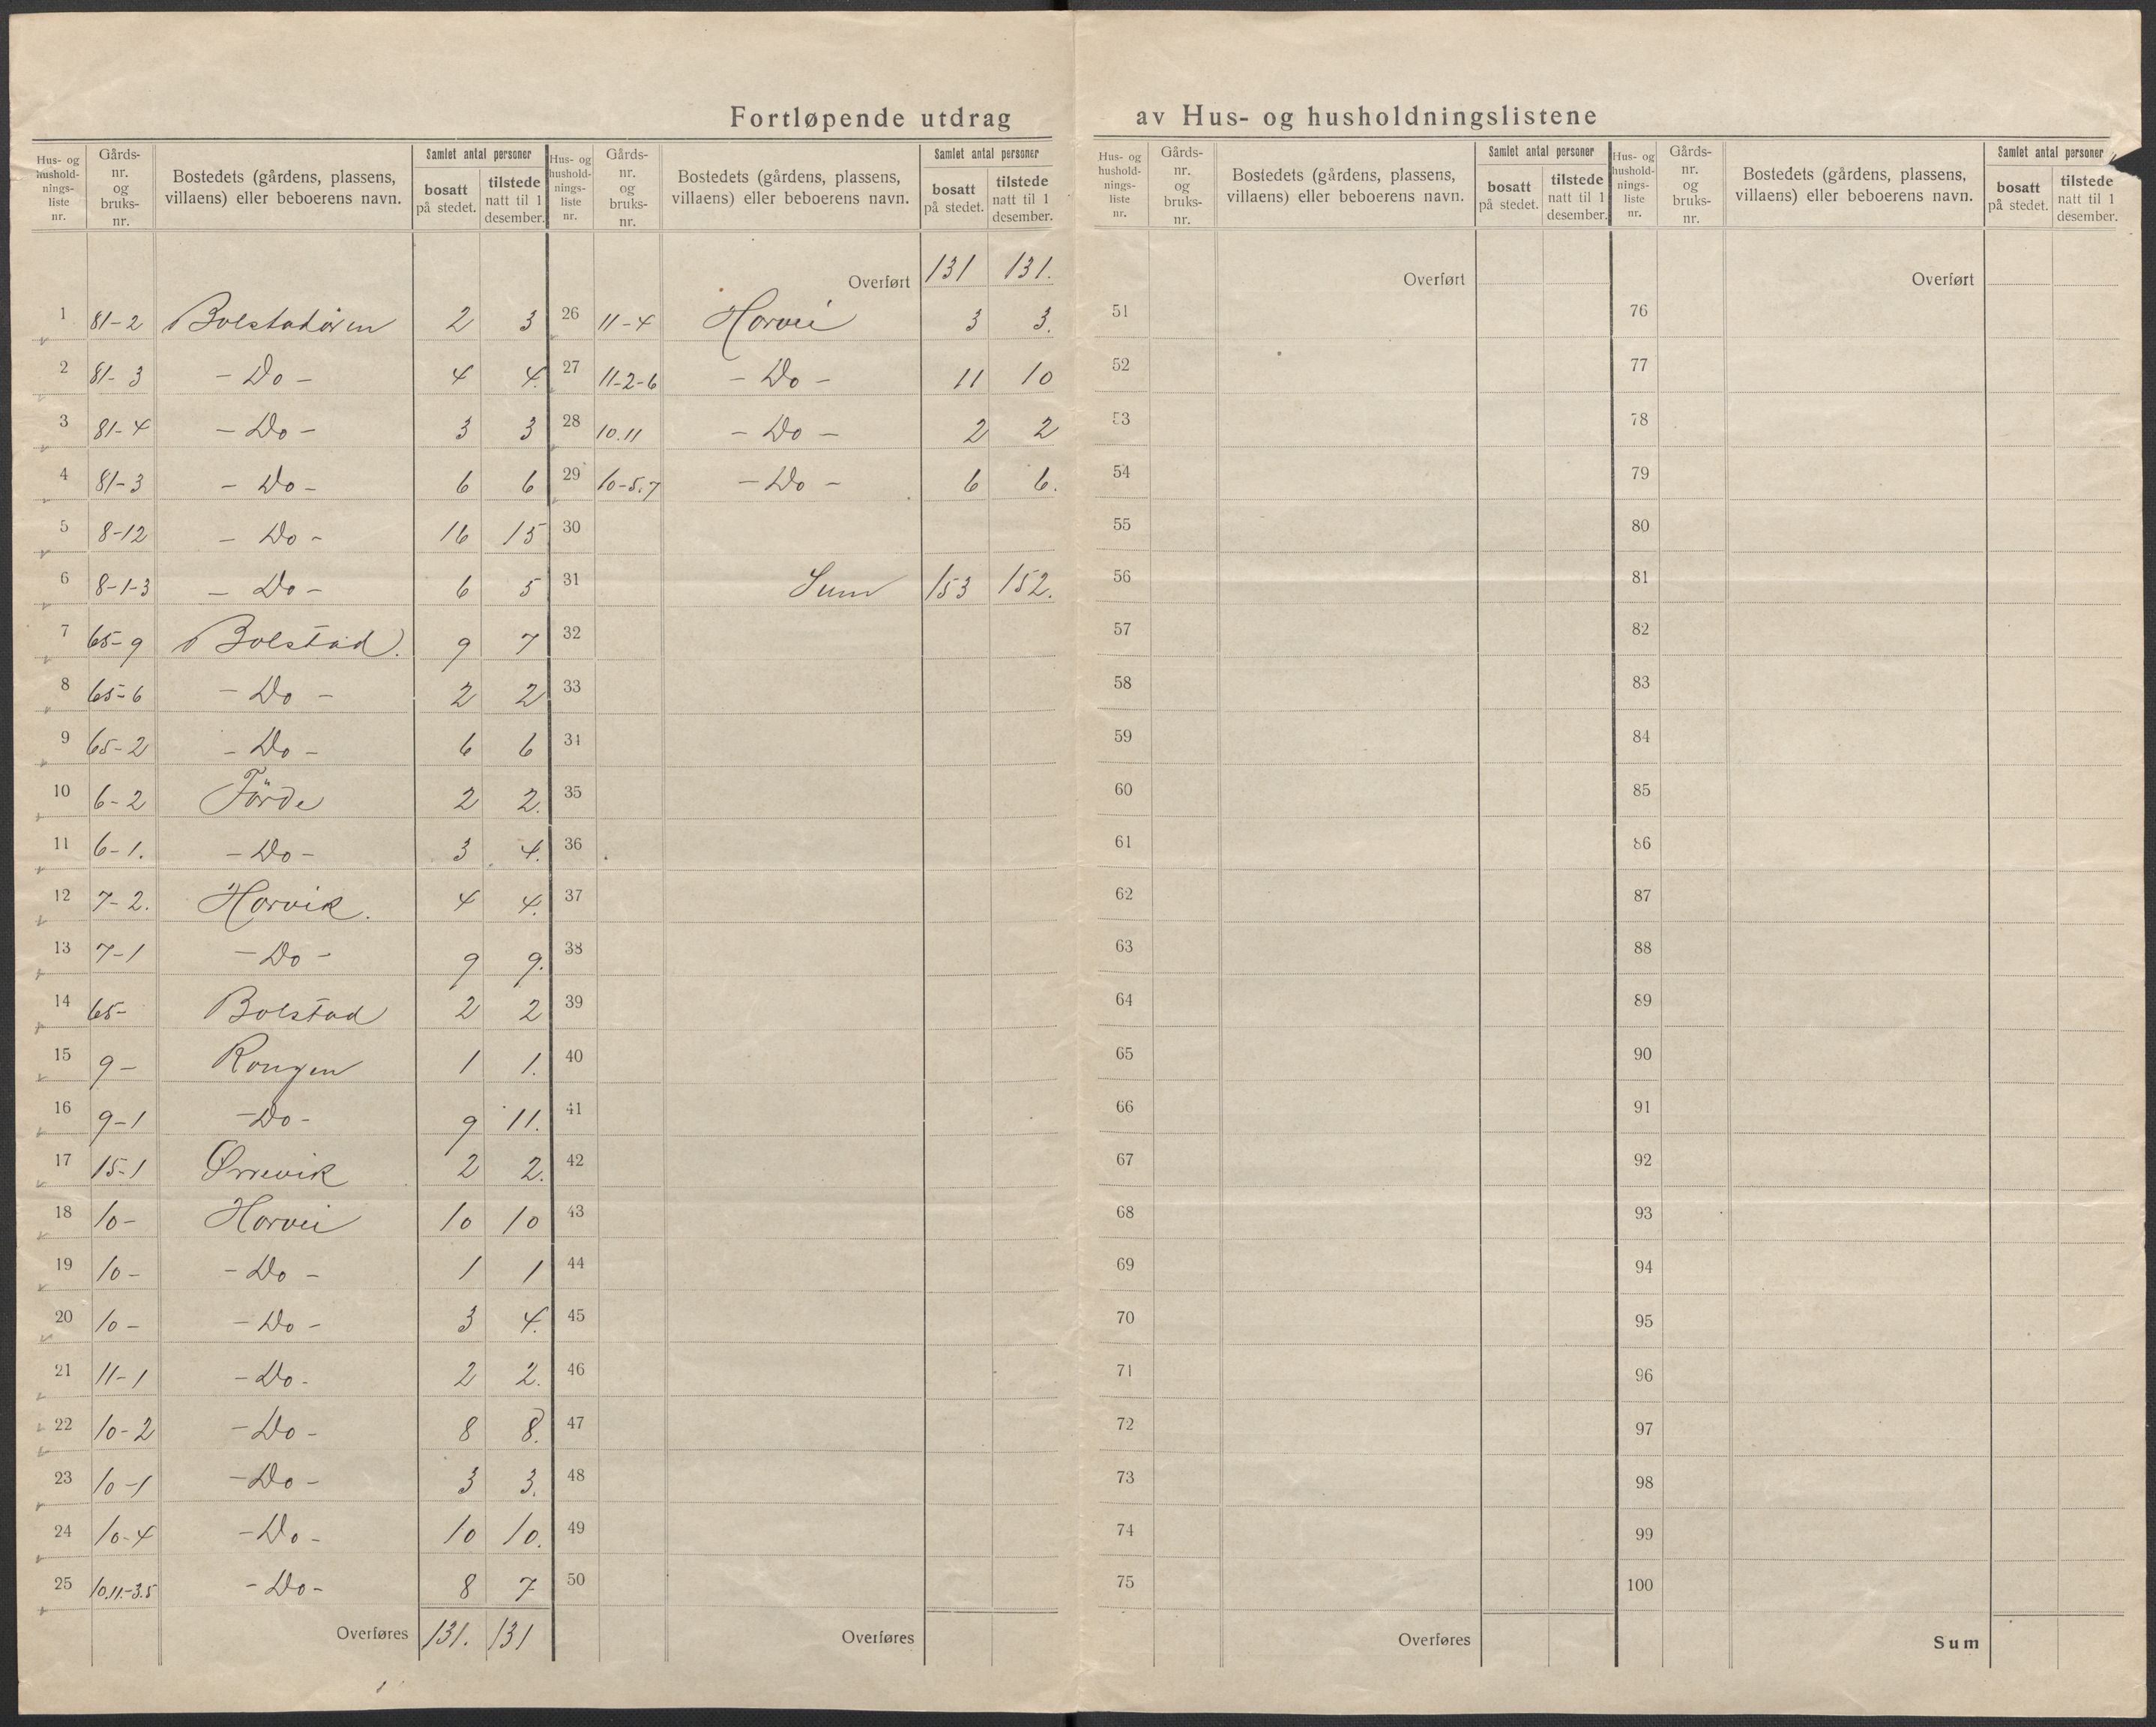 Fortløpende utdrag av Hus- og husholdningslistene
Hus- og hushold-nings-liste nr. Gårds-nr. og bruks-nr. Bostedets (gårdens, plassens, villaens) eller beboerens navn. Samlet antal personer bosatt på stedet. tilstede natt til 1 desember.
1 81-2 Bolstadøren 2 3
2 81-3 -Do- 4 4.
3 81-4 -Do- 3 3
4 81-3 -Do- 6 6
5 8-12 -Do- 16 15
6 8-1-3 -Do- 6 5
7 65-9 Bolstad. 9 7
8 65-6 -Do- 2 2
9 65-2 -Do- 6 6
10 6-2 Förde 2 2.
11 6-1. -Do- 3 4.
12 7-2. Horvik. 4 4.
13 7-1 -Do- 9 9.
14 65- Bolstad 2 2
15 9- Rongen 1 1.
16 9-1 -Do- 9 11.
17 15-1 Ørrevik 2 2.
18 10- Horvei 10 10
19 10- -Do- 1 1
20 10- -Do- 3 4.
21 11-1 -Do- 2 2.
22 10-2 -Do- 8 8.
23 10-1 -Do- 3 3.
24 10-4 -Do- 10 10.
25 10.11-3.5 -Do- 8 7
Overføres 131. 131
Hus- og hushold-nings-liste nr. Gårds-nr. og bruks-nr. Bostedets (gårdens, plassens, villaens) eller beboerens navn. Samlet antal personer bosatt på stedet. tilstede natt til 1 desember.
Overført 131 131.
26 11-4 Horvei 3 3.
27 11-2-6 -Do- 11 10
28 10.11 -Do- 2 2
29 10-5.7 -Do- 6 6.
30
31 Sum 153 152.
32
33
34
35
36
37
38
39
40
41
42
43
44
45
46
47
48
49
50
Overføres
Hus- og hushold-nings-liste nr. Gårds-nr. og bruks-nr. Bostedets (gårdens, plassens, villaens) eller beboerens navn. Samlet antal personer bosatt på stedet. tilstede natt til 1 desember.
Overført
51
52
53
54
55
56
57
58
59
60
61
62
63
64
65
66
67
68
69
70
71
72
73
74
75
Overføres
Hus- og hushold-nings-liste nr. Gårds-nr. og bruks-nr. Bostedets (gårdens, plassens, villaens) eller beboerens navn. Samlet antal personer bosatt på stedet. tilstede natt til 1 desember.
Overført
76
77
78
79
80
81
82
83
84
85
86
87
88
89
90
91
92
93
94
95
96
97
98
99
100
Sum